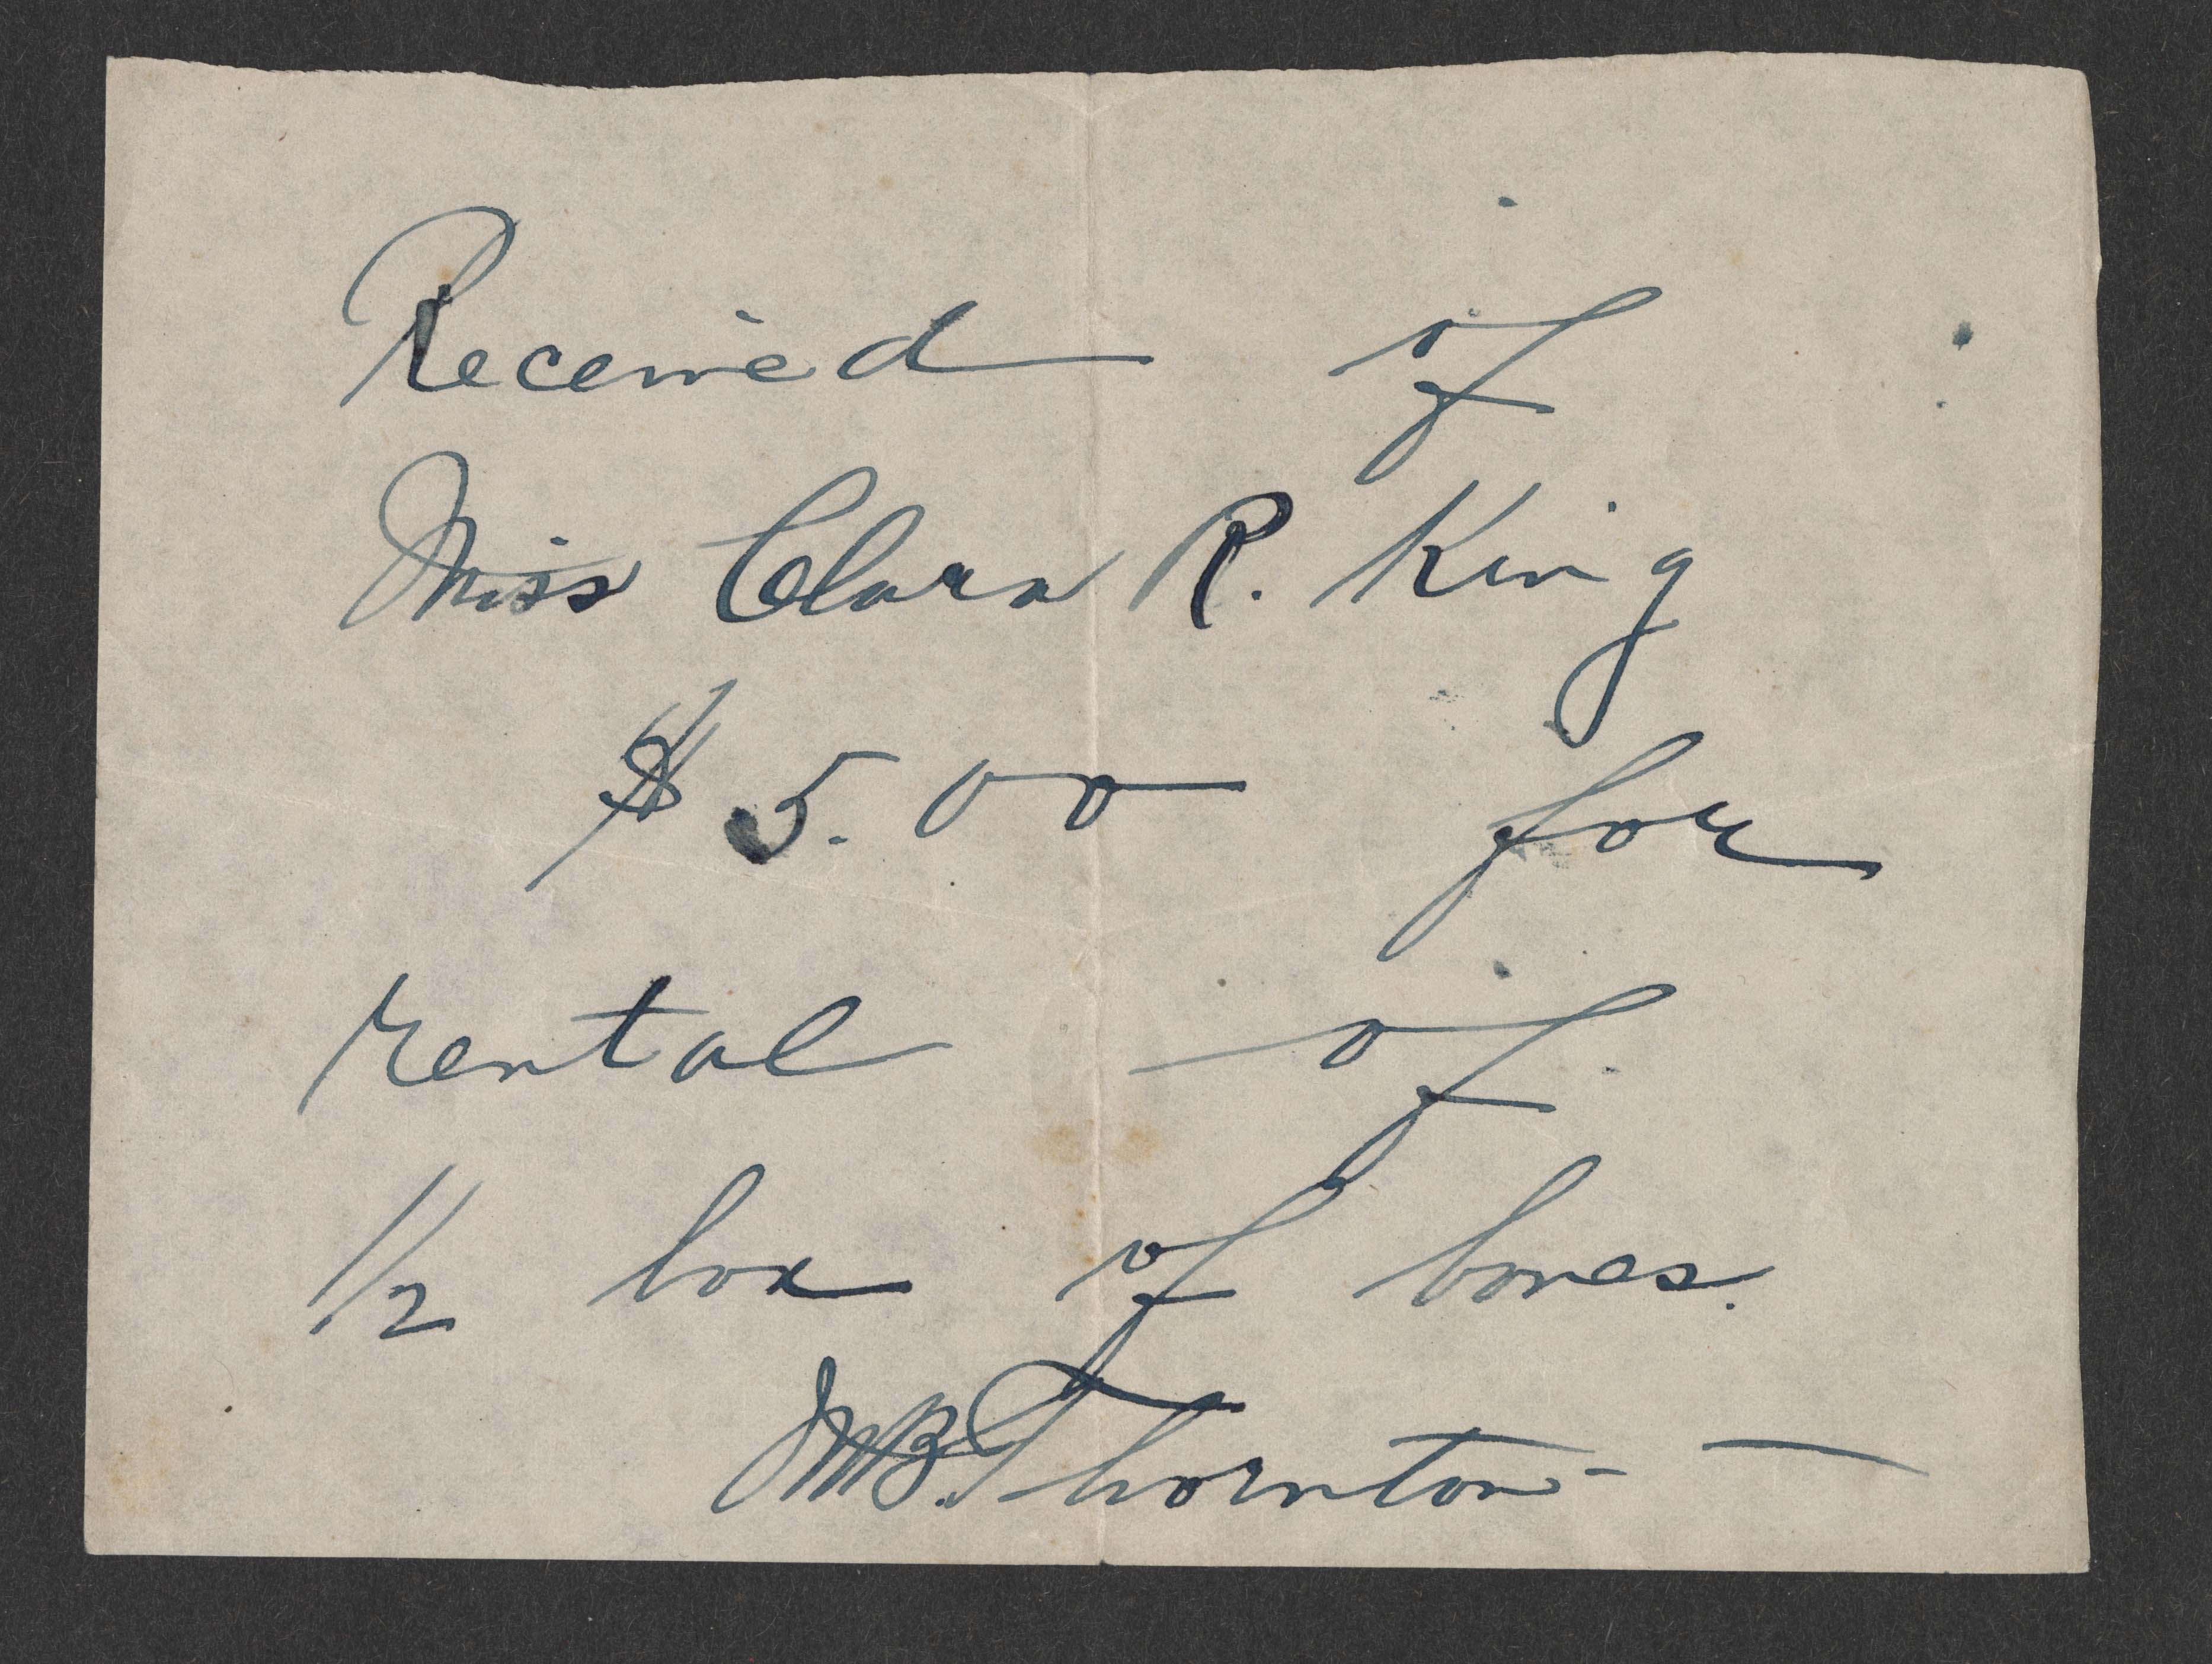 Received of
Miss Clara R. King
$5.00 for
rental of
1/2 box of bones.
M.B. Thornton